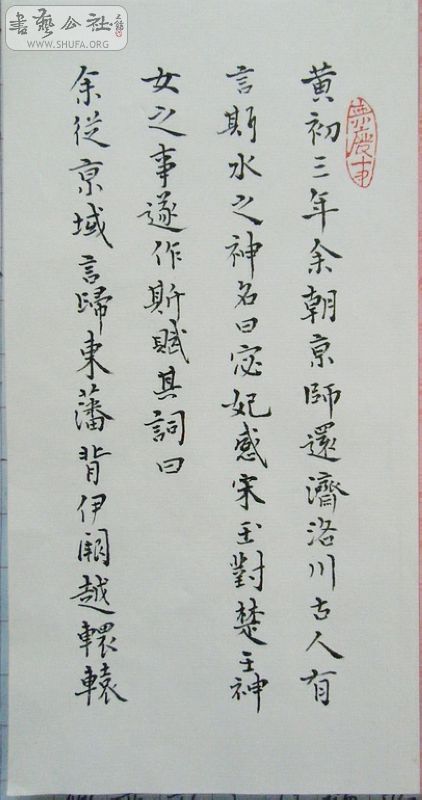 書藝公社
WWW.SHUFA.ORG
黄初三年余朝京師還濟洛川古人有
言斯水之神名曰宓妃感宋玉對楚王神
女之事遂作斯賦其詞曰
余從京域言歸東藩背伊闕越轘轅